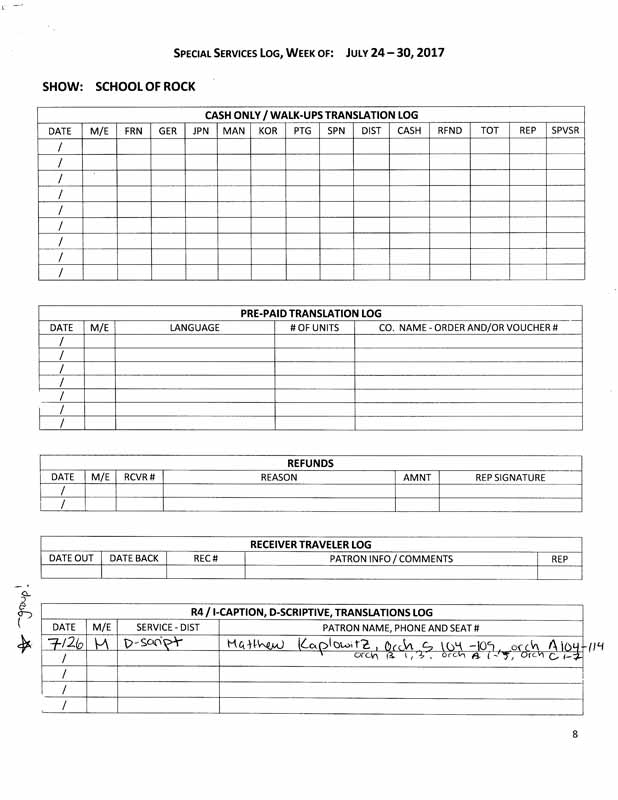 SPECIAL SERVICES LOG, WEEK OF: JULY 24 – 30, 2017
SHOW: SCHOOL OF ROCK
CASH ONLY / WALK-UPS TRANSLATION LOG
DATE M/E FRN GER JPN MAN KOR PTG SPN DIST CASH RFND TOT REP SPVSR
/
/
/
/
/
/
/
/
/
PRE-PAID TRANSLATION LOG
DATE M/E LANGUAGE # OF UNITS CO. NAME - ORDER AND/OR VOUCHER #
/
/
/
/
/
/
/
REFUNDS
DATE M/E RCVR # REASON AMNT REP SIGNATURE
/
/
RECEIVER TRAVELER LOG
DATE OUT DATE BACK REC # PATRON INFO / COMMENTS REP
R4 / I-CAPTION, D-SCRIPTIVE, TRANSLATIONS LOG
DATE M/E SERVICE - DIST PATRON NAME, PHONE AND SEAT #
7/26 M D-script Matthew Kaplowitz, Orch S 104-109, orch A104-114
orch B 1,3. orch A 1-5, orch C 1-7
/
/
/
/
8